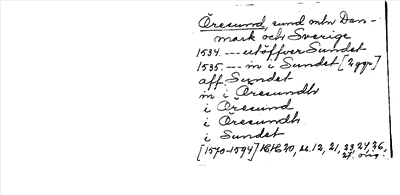 Öresund, sund mln Dan-
mark och Sverige
1534. --- utöffver Sundet
1535. --- in i Sundet [2 ggr]
aff Sundet
in i Öresundh
i Öresund
i Öresundh
i Sundet
[1570-1594] HH 20, s. 12, 21, 23, 24, 26,
27. orig.